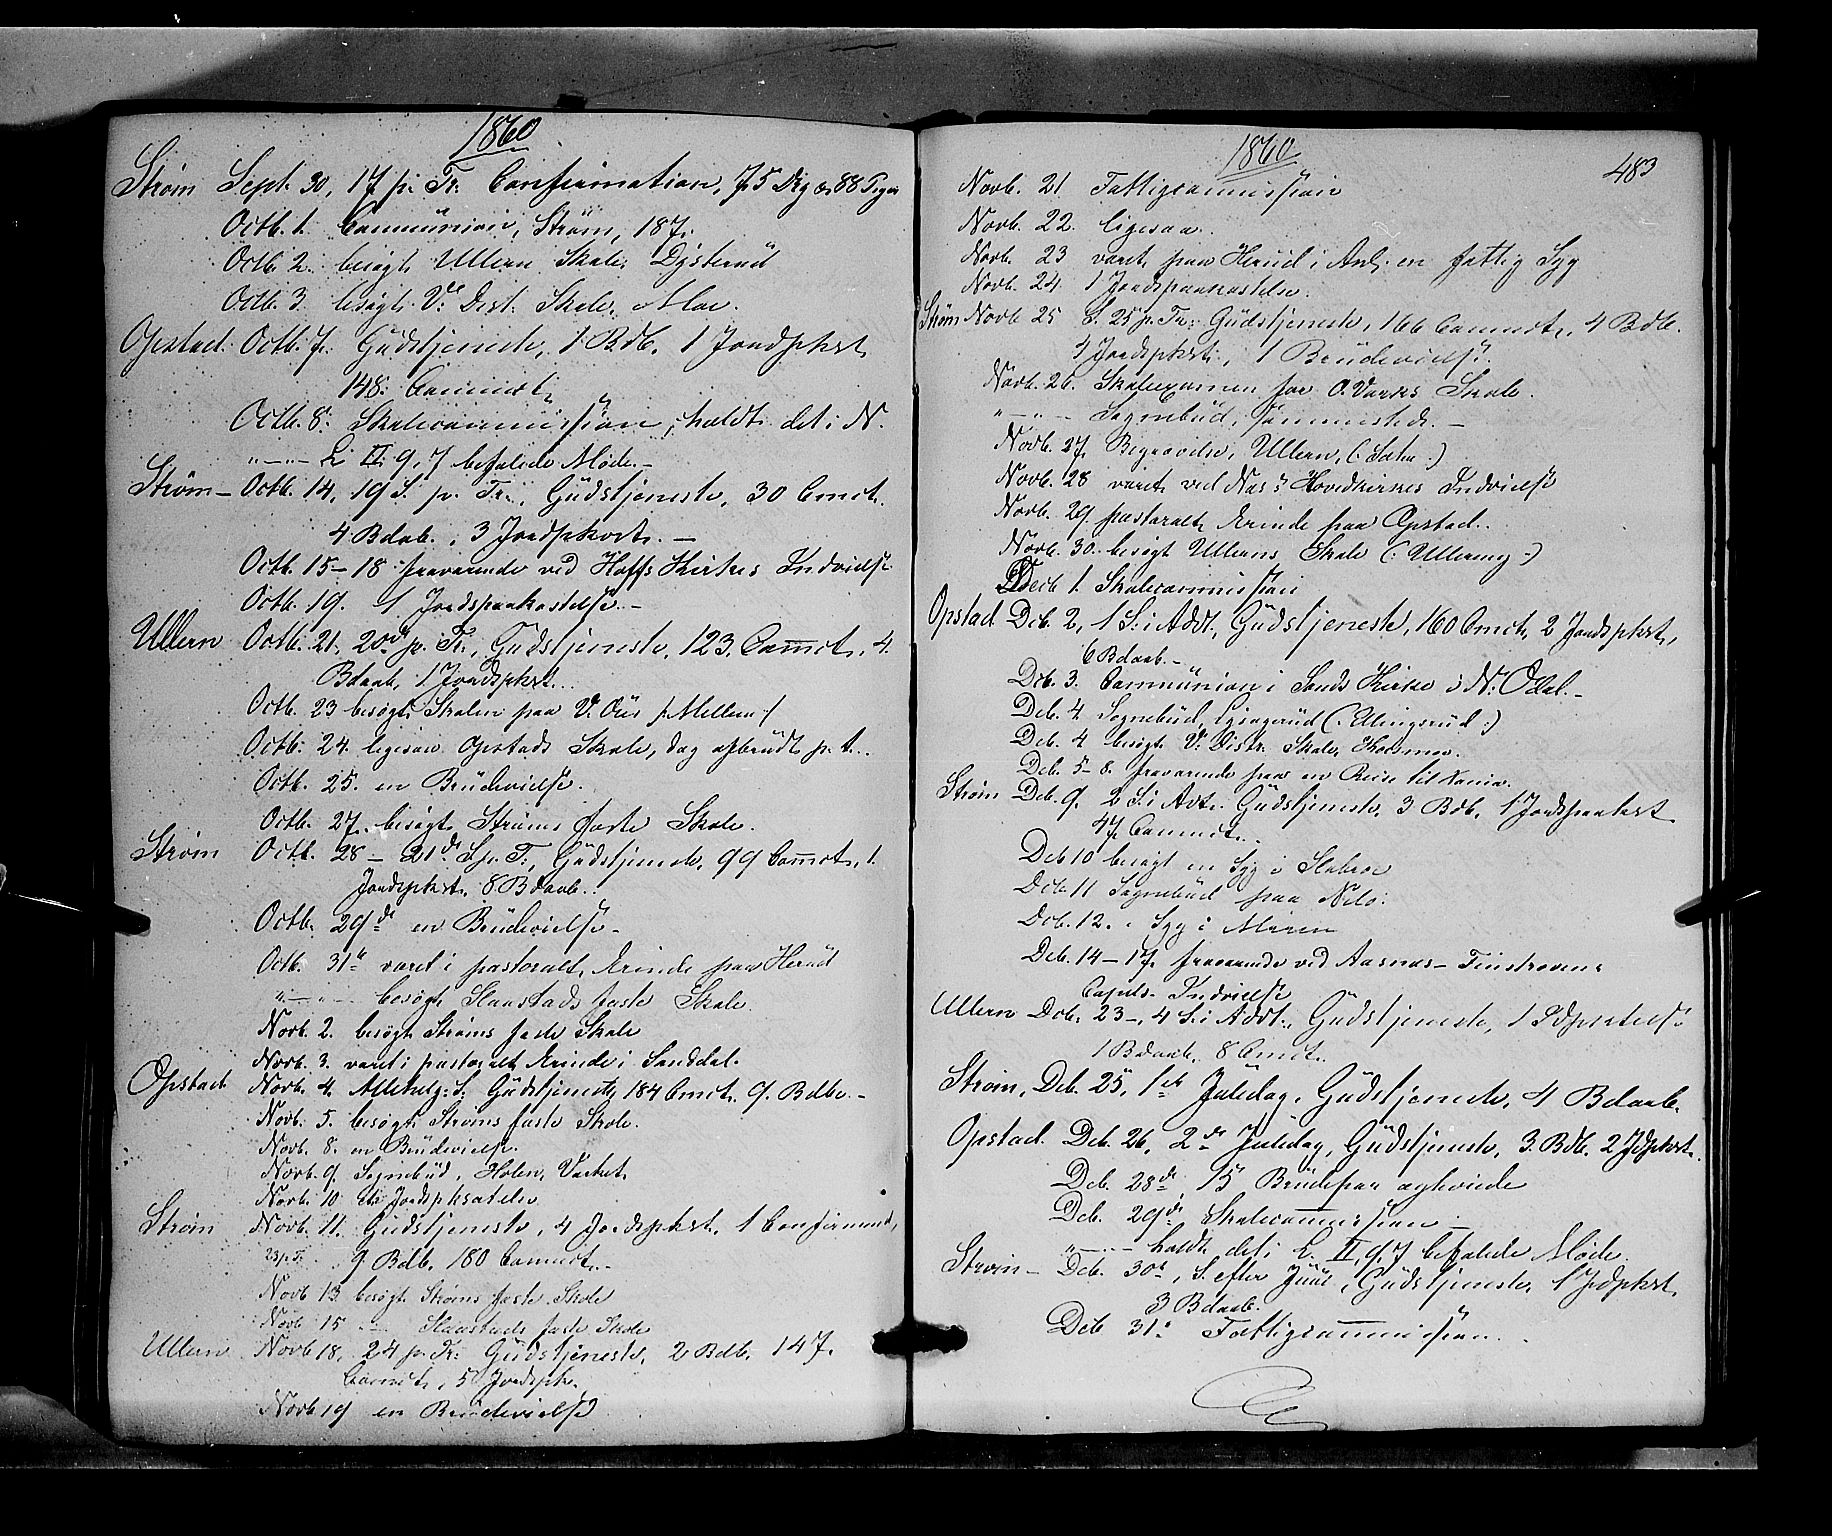 1860
Strøm Sept. 30, 17 p. Tr. Confirmation, 75 Drg og 88 Piger
Octb. 1. Communion, Strøm, 187.
Octb. 2. besøgt Ullern Skole, Dysterud
Octb. 3. besøgt V. Dist. Skole, Moe.
Opstad. Octb. 7. Gudstjeneste, 1 Bdb. 1 Jordpkst
148. Communict.
Octb. 8. Skolecommission, holdt det i N.
"—"— L. II. 9, 7 befalede Møde.—
Strøm— Octb. 14, 19 S. p. Tr., Gudstjeneste, 30 Cmct.
4 Bdaab., 3 Jordpkst. —
Octb. 15–18 fraværende ved Hoffs Kirkes Indvielse
Octb. 19. 1 Jordspaakastelse.—
Ullern Octb. 21, 20de p. Tr., Gudstjeneste, 123 Commct. 4
Bdaab, 1 Jordspkst..
Octb. 23 besøgt Skolen paa V. Ous /: Mellem :/
Octb. 24. ligesaa Opstads Skole, dog afbrudt p. t..
Octb. 25. en Brudevielse.
Octb. 27. besøgt Strøms faste Skole.
Strøm Octb. 28 — 21de S. p. T., Gudstjeneste, 99 Commct. 1.
Jordspkst. 8 Bdaab..
Octb. 29de en Brudevielse.—
Octb. 31te været i pastoralt Erinde paa Herud
"—"— besøgt Slaastads faste Skole.
Novb. 2. besøgt Strøms faste Skole
Novb. 3. været i pastoralt Erinde i Sanddal.
Opstad Novb. 4. Allehelg: S. Gudstjeneste, 184 Cmct. 9. Bdb.—
Novb. 5. besøgt Strøms faste Skole.
Novb. 8. en Brudevielse.
Novb. 9. Sognebud, Holen, Værket.
Novb. 10. Jordspkastelse
Strøm Novb. 11. Gudstjeneste, 4 Jordspkst. 1 Confirmand,
23 p. Tr. 9 Bdb. 180 Commct.—
Novb. 13 besøgt Strøms faste Skole
Novb. 15 —"— Slaastads faste Skole
Ullern Novb. 18, 24 p. Tr. Gudstjeneste, 2 Bdb. 147.
Commct., 5 Jordspk.
Novb. 19 en Brudevielse
1860
483
Novb. 21. Fattigcommission
Novb. 22. ligesaa.
Novb. 23 været paa Herud i Anl. en fattig Syg
Novb. 24. 1 Jordspaakastelse.
Strøm Novb 25 S. 25 p. Tr. Gudstjeneste, 166 Commct., 4 Bdb.
4 Jordspkst., 1 Brudevielse.
Novb. 26. Skoleexamen for O. Værkes Skole.
"—"— Sognebud, sammesteds.—
Novb. 27. Begravelse, Ullern, (: Sæter :)
Novb. 28 været ved Næs's Hovedkirkes Indvielse
Novb. 29. pastoralt Erinde paa Opstad.
Novb. 30. besøgt Ullerns Skole (: Ullereng :)
Decb 1. Skolecommission
Opstad Dcb. 2, 1 S. i Advt., Gudstjeneste, 160 Cmct., 2 Jordspkst,
6 Bdaab.—
Dcb. 3. Communion i Sands Kirke i N. Odal.—
Dcb. 4. Sognebud,
Dcb. 4 besøgt V. Distr. Skole,
Dcb. 5–8. fraværende paa en Reise til Xania.
Strøm Dcb. 9. 2 S. i Advt. Gudstjeneste, 3 Bdb. 1 Jordspaakst
47 Commct..
Dcb 10 besøgt en Syg i Slabroe
Dcb. 11 Sognebud paa Nilo.
Dcb. 12. Syg i Moren
Dcb. 14–17. fraværende ved Aasnæs-Finskovens
Capels-Indvielse
Ullern Dcb. 23—, 4 S. i Advt., Gudstjeneste, 1 Jdpkstelse
1 Bdaab, 8 Cmct.
Strøm, Dcb. 25, 1ste Juledag, Gudstjeneste, 4 Bdaab.
Opstad. Dcb. 26, 2de Juledag, Gudstjeneste, 3 Bdb. 2 Jdpkst.
Dcb. 28de, 15 Brudepar egteviede
Dcb. 29de, Skolecommission —
"—"— holdt det i L. II, 9, 7 befalede Møde.
Strøm— Dcb. 30te, S. efter Juul, Gudstjeneste, 1 Jdpkst,
3 Bdaab.
Dcb 31. Fattigcommission.